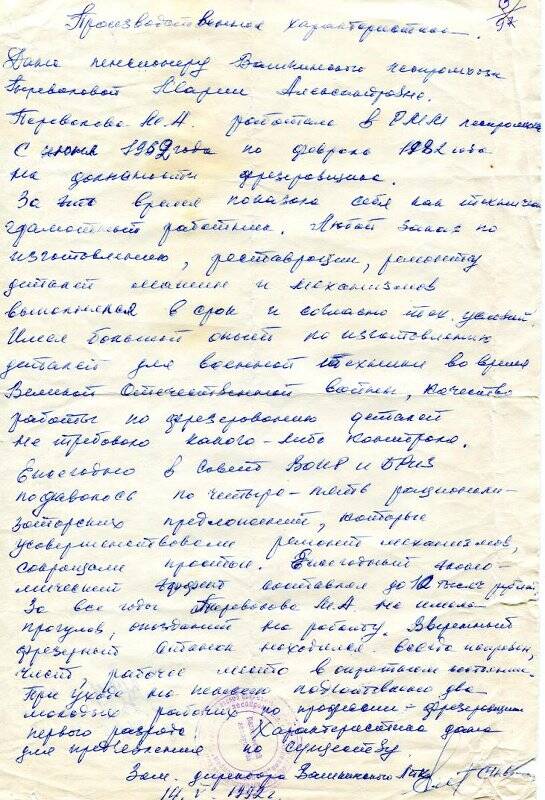 Производственная характеристика.
Дана пенсионеру Вашкинского леспромхоза
Перваковой Марии Александровне.
Первакова М.А. работала в РММ леспромхоза
С июня 1962 года по февраль 1982 года
на должности фрезеровщика.
За это время показала себя как технически
грамотный работник. Любой заказ по
изготовлению, реставрации, ремонту
деталей машин и механизмов
выполнялся в срок и согласно тех. условий.
Имея большой опыт по изготовлению
деталей для военной техники во время
Великой Отечественной войны, качество
работы по фрезерованию деталей
не требовало какого-либо контроля.
Ежегодно в Совет ВОИР и БРИЗ
подавалось по четыре-пять рационали-
заторских предложений, которые
усовершенствовали ремонт механизмов,
сокращали простои. Ежегодный эконо-
мический эффект составлял до 10 тысяч рублей.
За все годы Первакова М.А. не имела
прогулов, опозданий на работу. Вверенный
фрезерный станок находился всегда исправен,
чист, рабочее место в опрятном состоянии.
При уходе на пенсию подготовлено два
молодых рабочих по профессии - фрезеровщик
первого разряда. Характеристика дана
для предъявления по существу.
Зам. директора Вашкинского
14. V. 1992 г.